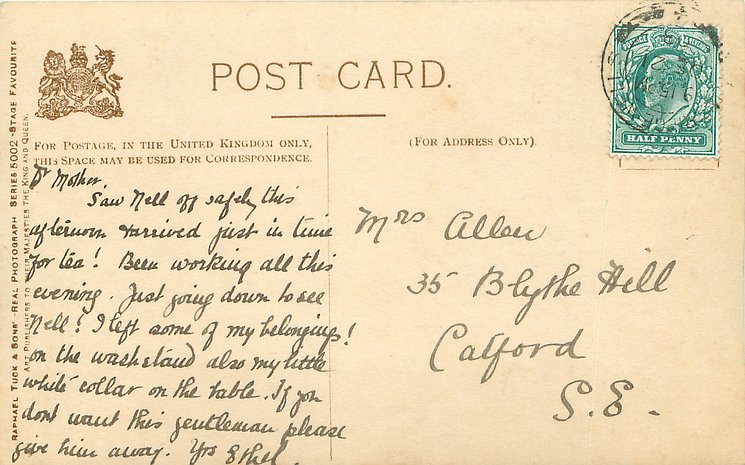 POST CARD.
FOR POSTAGE, IN THE UNITED KINGDOM ONLY,
THIS SPACE MAY BE USED FOR CORRESPONDENCE.
(FOR ADDRESS ONLY).
RAPHAEL TUCK & SONS' "REAL PHOTOGRAPH" SERIES 5002 - STAGE FAVOURITE
ART PUBLISHERS TO THEIR MAJESTIES THE KING AND QUEEN.
POSTAGE REVENUE
HALF PENNY
Dr Mother.
Saw Nell off safely this
afternoon & arrived just in time
for tea! Been working all this
evening. Just going down to see
Nell! I left some of my belongings!
on the washstand also my little
white collar on the table. If you
dont want this gentleman please
give him away. Yrs Ethel.
Mrs Allen
35 Blythe Hill
Catford
S.E.